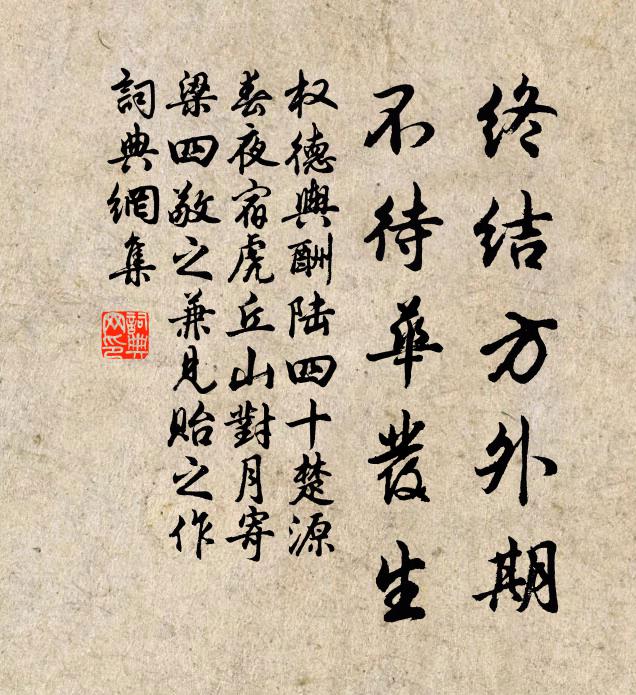 终结方外期
不待華發生
权德興酬陆四十楚源
春夜宿虎丘山對月寄
梁四敬之兼見贻之作
詞典網集
詞典
网印